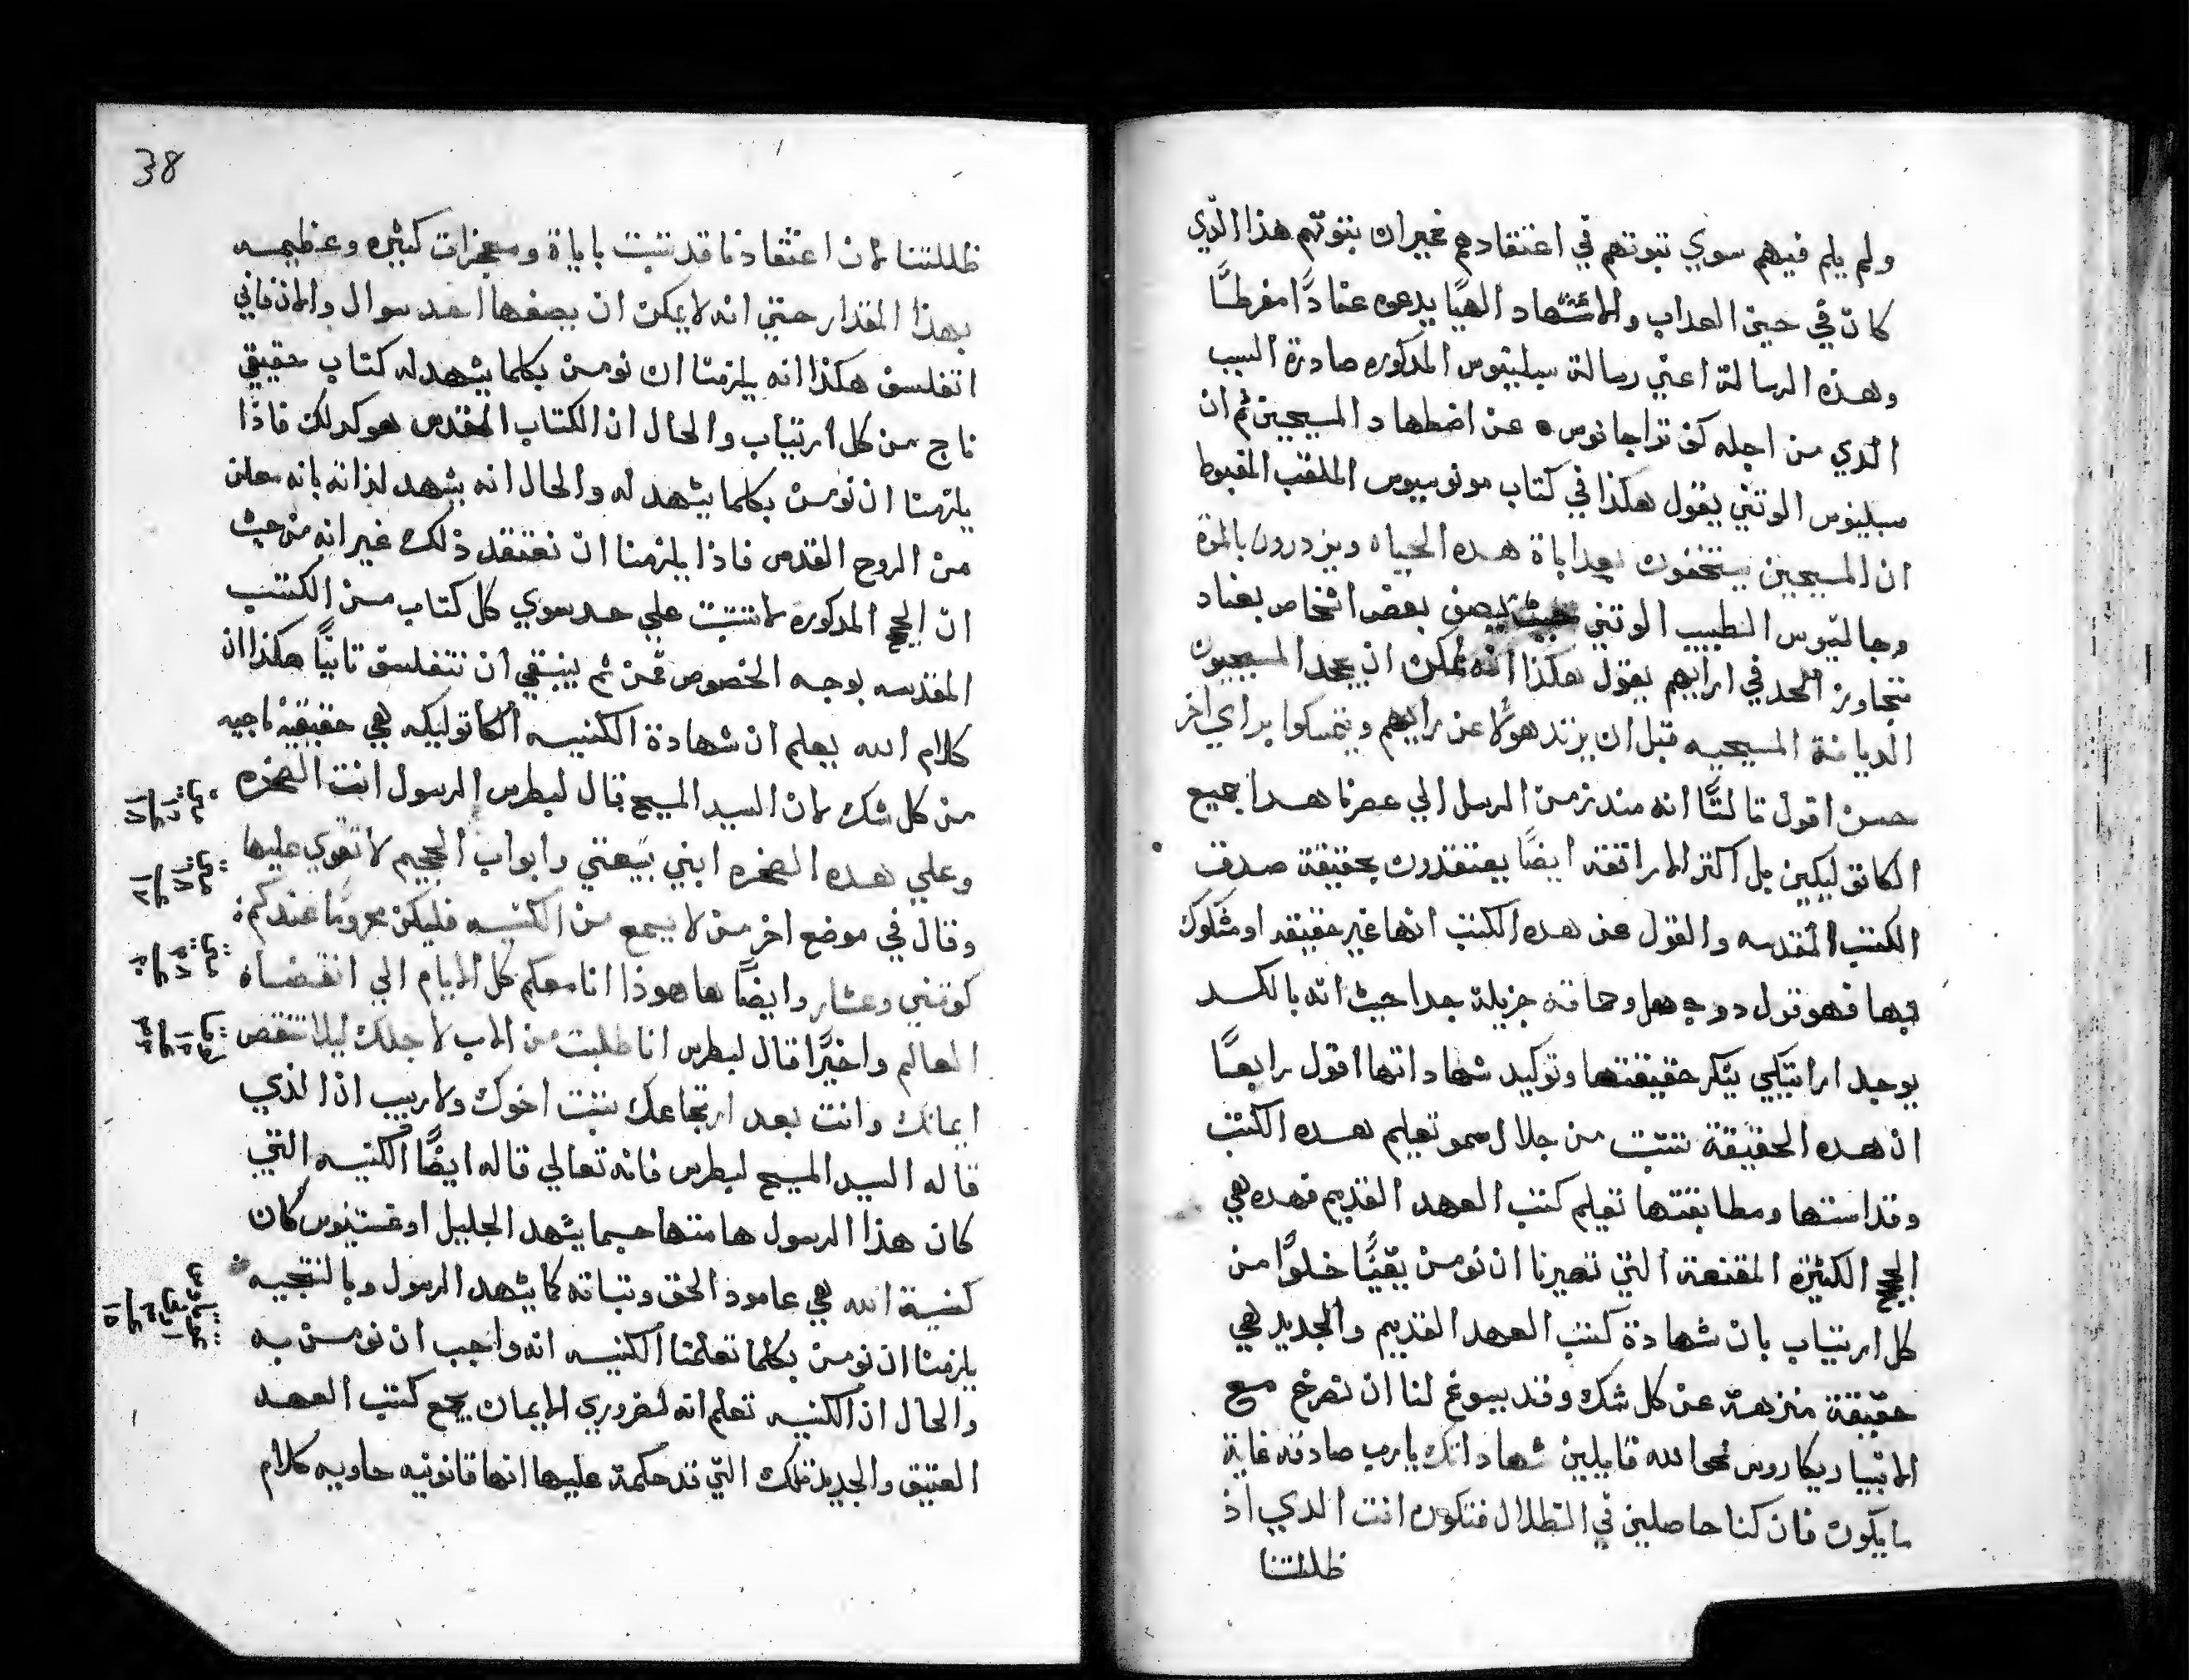 ولم يلم فيهم سوي تبوتهم في اعتقادهم غيران بتوتهم هذا الذي
كان في حين العداب والاشهاد الهيًا يدعوه عنادًا مفرطًا
وهذه الرسالة اعني رسالة سيلينوس المدكوره صادرة السبب
الدي من اجله كف تراجانوس عن اضطهاد المسيحيين ثم ان
سيلينوس الوتني يقول هكذا في كتاب مونوسيوس الملقب المغبوط
ان المسيحيين يستخفون بعدابات هده الحياه ويزدرون بالموة
وجالينوس الطبيب الوتني حيث يصف بعض اشخاص بعناد
متجاوز الحد في ارايهم يقول هكذا انه يمكن ان يجحد المسيحيون
الديانة المسيحيه قبل ان يرتد هولا عن رايهم ويتمسكوا براي اخر
حسن اقول تالتًا انه مند زمن الرسل الي عصرنا هدا جميع
الكاتوليكين بل اكتر الاراتقه ايضًا يعتقدون بحقيقة صدق
الكتب المقدسه والقول عن هده الكتب انها غير حقيقه او مشكوك
بها فهو قول دو جهل وحماقه جزيلة جدا حيث انه بالكد
يوجد اراتيكي ينكر حقيقتها وتوكيد شهاداتها اقول رابعًا
ان هده الحقيقة تتبت من جلال سمو تعليم هده الكتب
وقداستها ومطابقتها تعليم كتب العهد القديم فهده هي
الحجج الكثيرة المقنعة التي تصيرنا ان نومن يقينًا خلوًا من
كل ارتياب بان شهادة كتب العهد القديم والجديد هي
حقيقة منزهة عن كل شك وقد يسوغ لنا ان نصرخ مع
الانبيا ريكاروس نحو الله قايلين شهاداتك يارب صادقه غاية
ما يكون فان كنا حاصلين في الظلال فتكون انت الدي اذ
ظللتنا
38
ظللتنا لان اعتقادنا قد تتبت باياة ومعجزات كثيره وعظيمه
بهذا المقدار حتي انه لا يمكن ان يصفها احد سوال والان فاني
اتفلسف هكذا انه يلزمنا ان نومن بكلما يشهد له كتاب حقيقي
ناج من كل ارتياب والحال ان الكتاب المقدس هو كدلك فاذا
يلزمنا ان نومن بكلما يشهد له والحال انه يشهد لذاته بانه معلن
من الروح القدس فاذا يلزمنا ان نعتقد ذلك غير انه من حيث
ان الحجج المدكوره لا تتبت علي حد سوي كل كتاب من الكتب
المقدسه بوجه الخصوص فمن ثم ينبغي ان نتفلسف تانيًا هكذا ان
كلام الله يعلم ان شهادة الكنيسه الكاتوليكه هي حقيقة ناجيه
من كل شك لان السيد المسيح قال لبطرس الرسول انت الصخره
وعلي هده الصخره ابني بيعتي وابواب الجحيم لا تقوي عليها
وقال في موضع اخر من لا يسمع من الكنيسه فليكن محرومًا عندكم
كوتني وعشار وايضًا ها هوذا انا معكم كل الايام الي انقضاه
العالم واخيرًا قال لبطرس انا طلبت من الاب لاجلك ليلا تنقص
ايمانك وانت بعد ارتجاعك تبت اخوك ولا ريب ان الذي
قاله السيد المسيح لبطرس فانه تعالي قاله ايضًا الكنيسه التي
كان هذا الرسول هامتها حسبما يشهد الجليل اوغستينوس كان
كنيسة الله هي عامود الحق وتباته كما يشهد الرسول وبالنتيجه
يلزمنا ان نومن بكلما تعلمنا الكنيسه انه واجب ان نومن به
والحال ان الكنيسه تعلم انه لضروري الايمان بجمع كتب العهد
العتيق والجديد تلك التي قد حكمة عليها انها قانونيه حاويه كلام